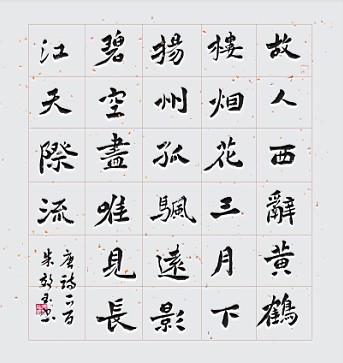 故人西辭黃鶴
樓烟花三月下
揚州孤颿遠影
碧空盡唯見長
江天際流
唐詩
朱